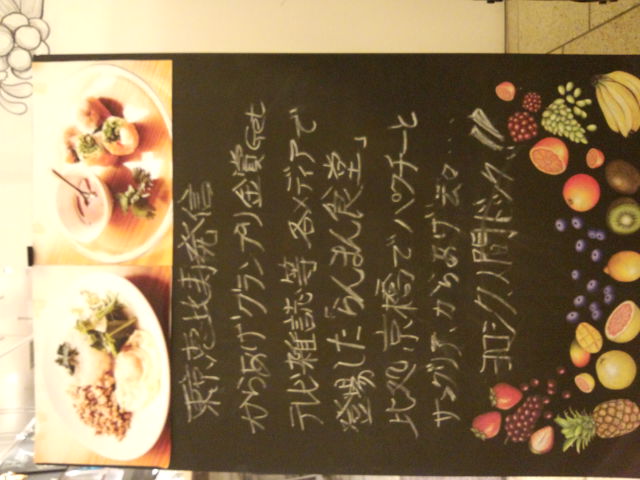 東京恵比寿発信
からあげグランプリ金賞Get
テレビ雑誌等 各メディアで
登場した「らんまん食堂」
比べ 京橋で パクチーと
サングリア、からあげ 云々…
ヨロシク、人間ドック、